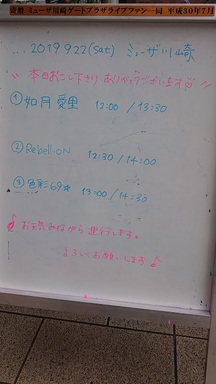 寄贈 ミューザ川崎ゲートプラザライブファン一同 平成30年7月
2019.9.22(Sat) ミューザ川崎
本日お越し下さりありがとうございます!!
①如月愛里 12:00 / 13:30
②RebellioN 12:30 / 14:00
③色彩69☆ 13:00 / 14:30
♪お客みながら進行します。
よろしくお願いします♪